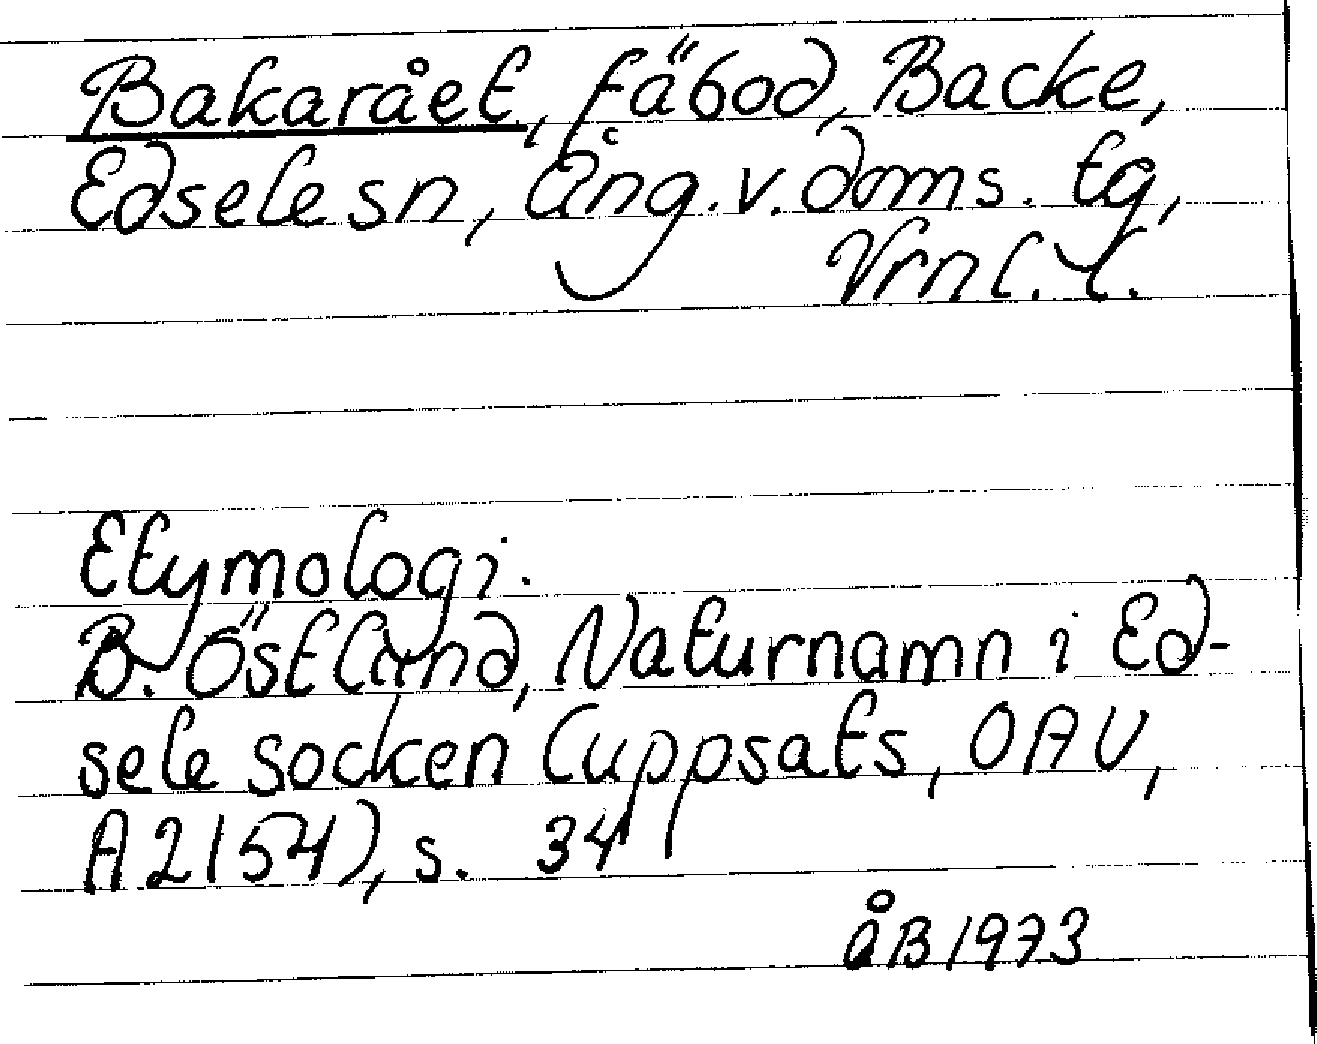 Bakarået, fäbod, Backe,
Edsele sn, Ång. v. doms. tg,
Vrnl. l.
Etymologi:
B. Östlund, Naturnamn i Ed-
sele socken (uppsats, OAU,
A2154), s. 34
åB 1973